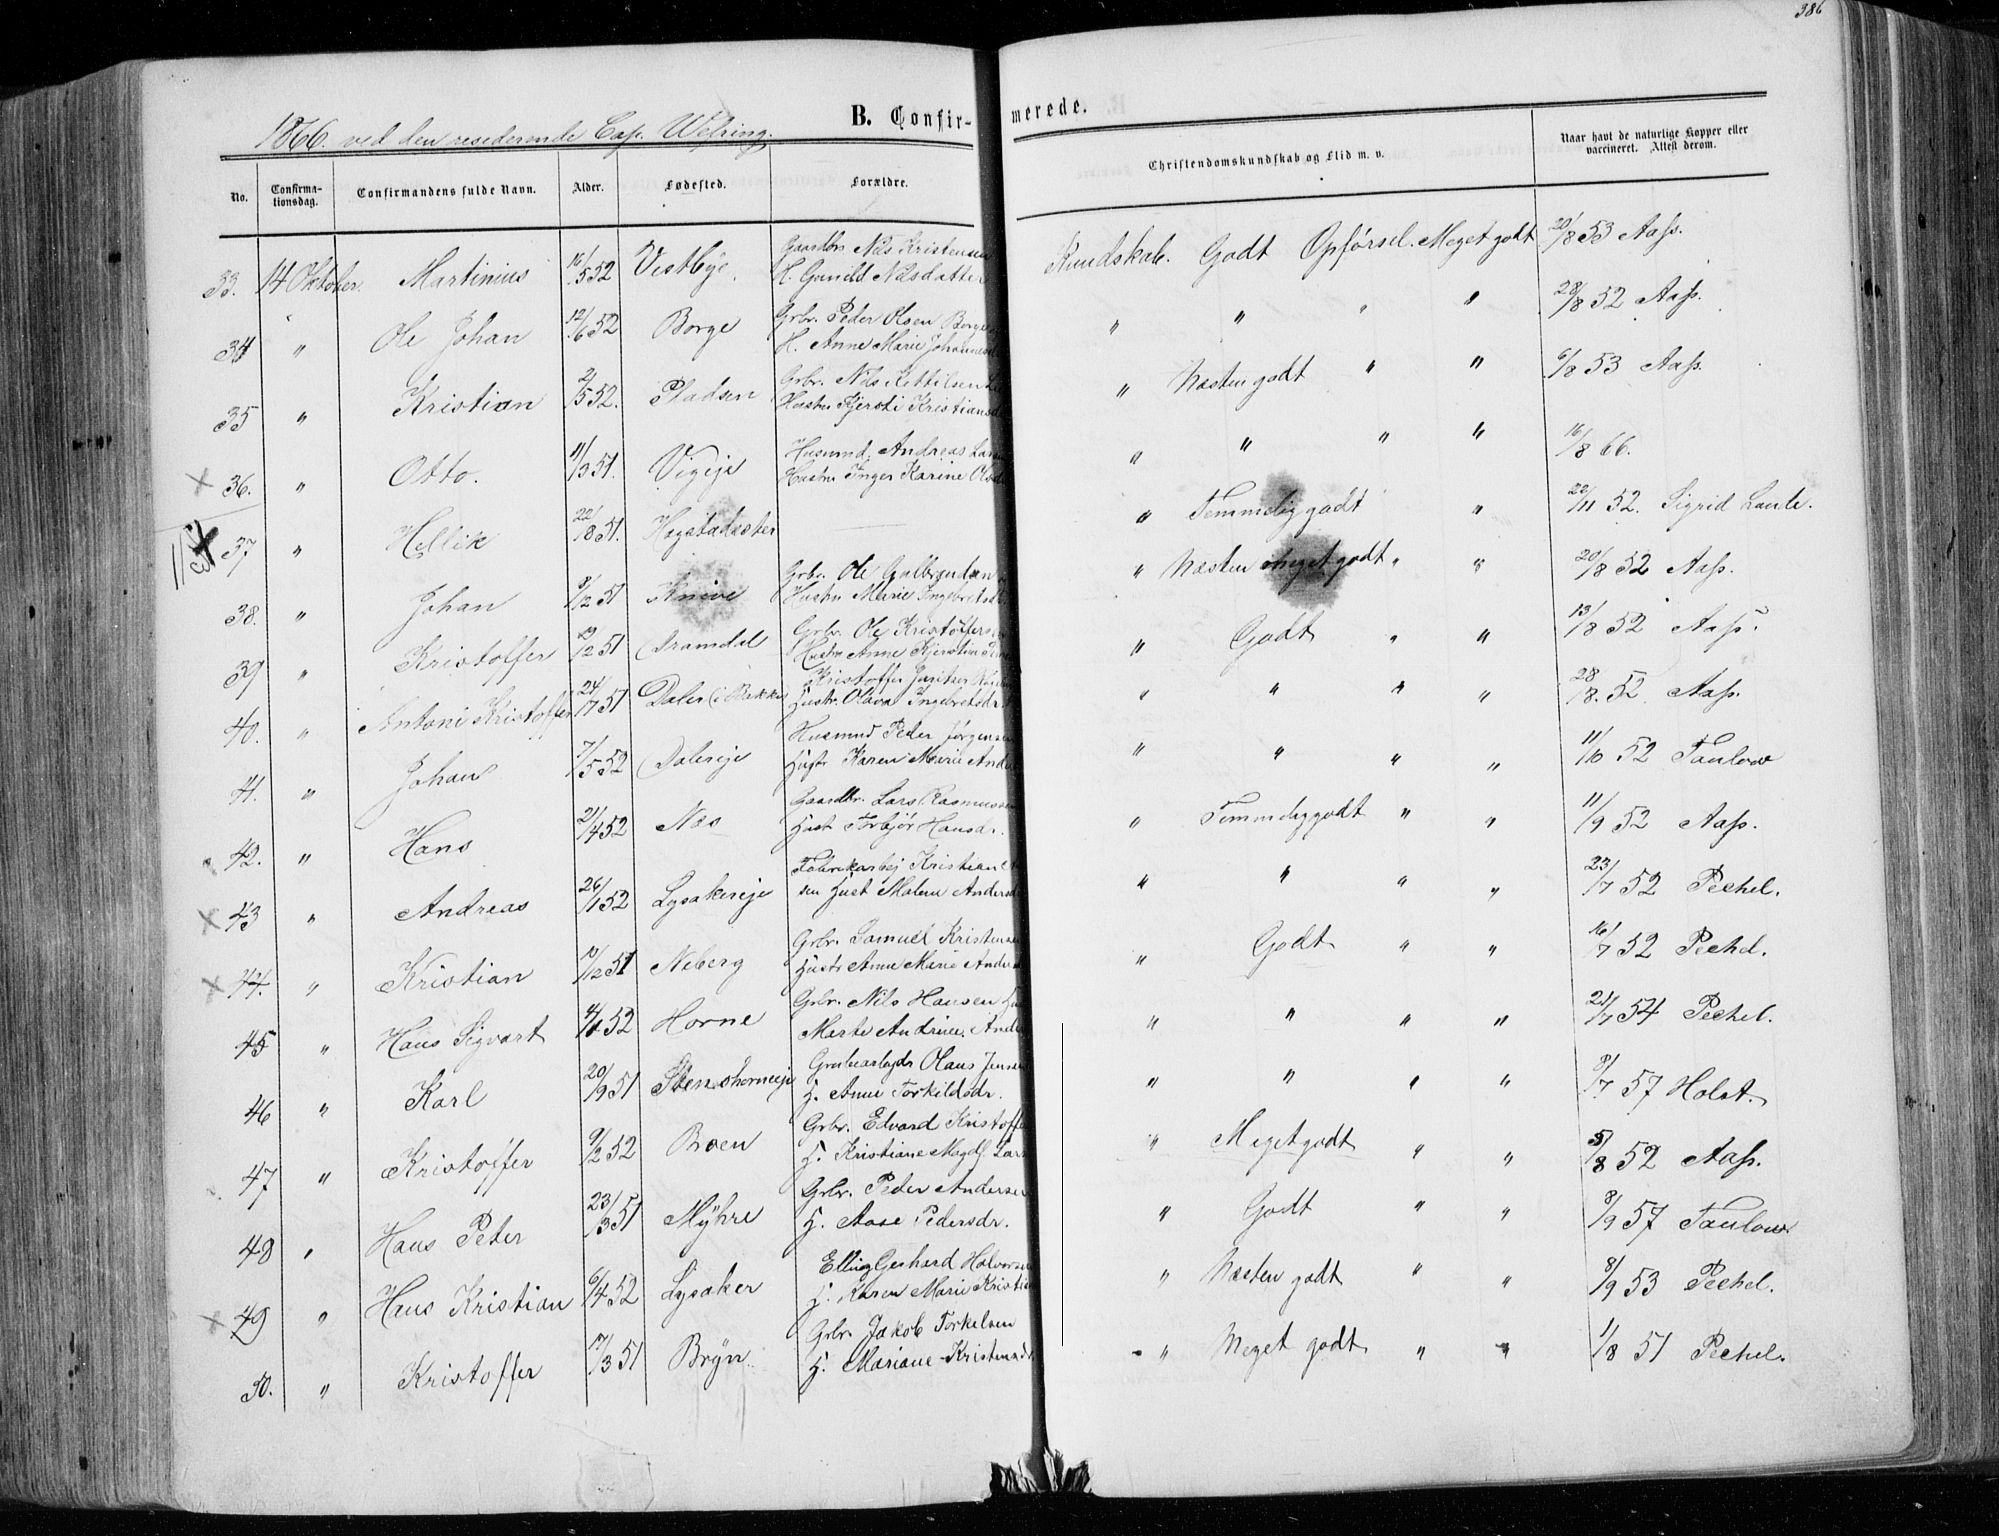 386
1866. ved den residerende Cap. Welning.
B. Confir-
merede.
No.
Confirma-
tionsdag.
Confirmandens fulde Navn.
Alder.
Fødested.
Forældre.
Christendomskundskab og Flid m. v.
Naar havt de naturlige Kopper eller
vaccineret. Attest derom.
33. 14 Oktober. Martinius 16/5 52 Vestbye. Gaardbr. Nils Kristensen
H. Gunild Nilsdatter
Kundskab. Godt Opførsel. Meget godt 20/8 53 Aass.
34 " Ole Johan 12/6 52 Borge Grbr. Peder Olsen Borge
H. Anne Marie Johannesd
" " " " 28/8 52 Aass.
35 " Kristian 2/5 52. Pladsen Grbr. Nils Kettilsen
Hustru Kjersti Kristiansd
" Næsten godt " " 6/8 53 Aass.
36. " Otto. 11/3 51. Vigeje Husmd. Andreas Lars
Hustru Inger Karine Olsd
" " " " 16/8 66.
37 " Hellik 22/8 51. Hagstadester
" Temmelig godt " 22/11 52. Sigrid Lande.
38. " Johan 8/12 51 Knive Grbr. Ole Gulbrandsen
Hustru Marie Ingebretsd
" Næsten meget godt " " 20/8 52 Aass.
39 " Kristoffer 29/2 51 Dramdal Grbr. Ole Kristoffers
Hustru Anne Kjerstine
" Godt " " 13/8 52 Aass.
40. " Antoni Kristoffer 24/7 51 Daler (i Bakke) Kristoffer
Hustr. Olava Ingebretsdr
" " " " 28/8. 52 Aass.
41. " Johan 7/5 52 Dalereje Husmnd Peder Jørgensen
Hustr Karen Marie Ander
" " " " 11/10 52 Taulow
42. " Hans 21/4 52 Næs Gaardbr. Lars Rasmussen
Hust Torbjør Hansdr.
" Temmelig godt " " 11/9 52 Aass.
43 " Andreas 26/1 52 Lysakereje Fabrikarbej Kristian
sen Hust Malene Andersd
" " " " 23/7 52 Pechel.
44. " Kristian 10/12 51 Neberg Grbr. Samuel Kristensen
Hustr Anne Marie Anders
" Godt " " 16/7 52 Pechel.
45 " Hans Sigvart 4/1 52 Horne Grbr. Nils Hansen H
Marte Andrine. Ander
" " " " 21/7 54 Pechel.
46 " Karl 20/9 51 Stenshorneeje Grubearbejdr Olaus Jensen
H. Anne Torkildsdr.
" " " " 9/7 57 Holst.
47 " Kristoffer 9/2 52 Boen Grbr. Edvard Kristoffer
H. Kristiane Magdl. Lars
" Meget godt " " 5/8 52 Aass.
48 " Hans Peter 23/3 51 Myhre Grbr. Peder Andersen
H. Aase Pedersdr.
" Godt " " 8/9 57 Taulow.
49 " Hans Kristian 6/4 52 Lysaker Elling Gerhard Halvorsen
H. Karen Marie Kristia
" Næsten godt " " 8/9 53 Pechel.
50. " Kristoffer 17/3 51 Bryn Grbr. Jakob Torkelsen
H. Mariane Kristensdt
" Meget godt " " 1/8 51 Pechel.